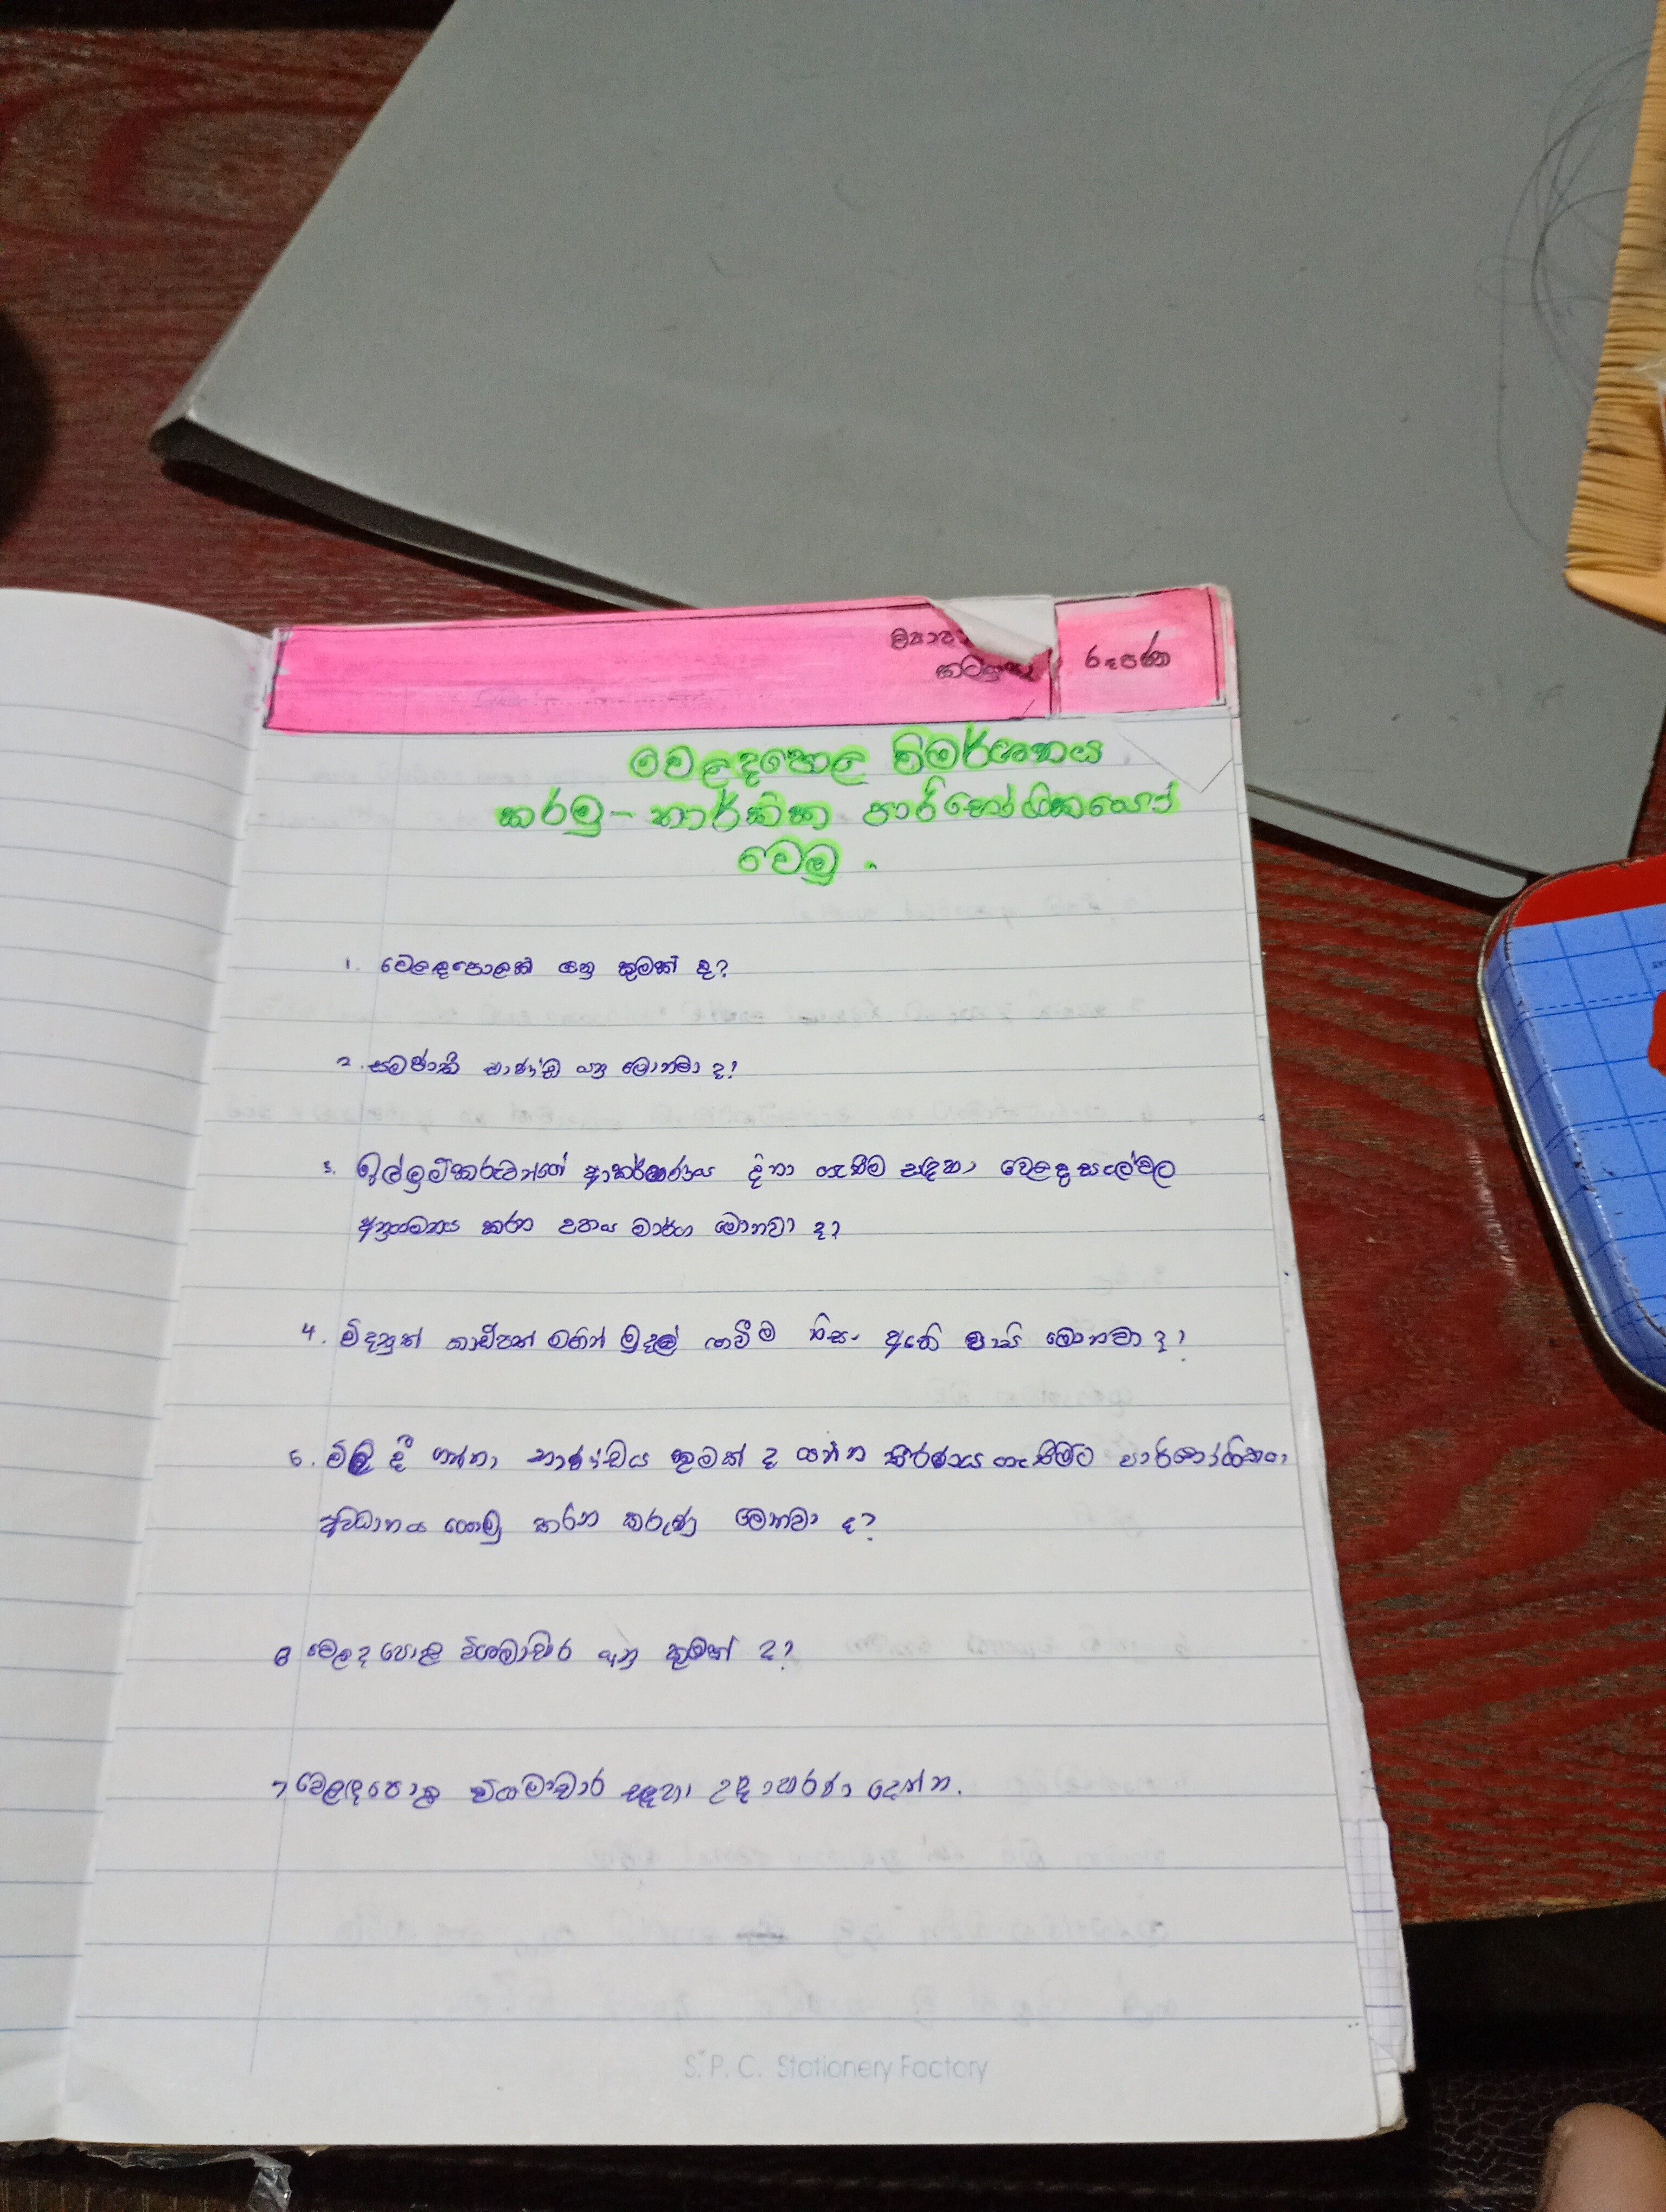 රූපණ
වෙළදපොළ විමර්ශනය
කරමු - තාර්කික පාරිභෝගිකයෝ
වෙමු.
1. වෙළදපොළක් යනු කුමක් ද?
2. සමජාතී භාණ්ඩ යනු මොනවා ද?
3. ඉල්ලුම්කරුවන්ගේ ආකර්ෂණය දිනා ගැනීම සඳහා වෙළද සැල්වල
අනුගමනය කරන උපාය මාර්ග මොනවා ද?
4. විදයුත් කාඩ්පත් මගින් මුදල් ගෙවීම නිසා ඇති වාසි මොනවා ද?
5. මිල දී ගන්නා භාණ්ඩය කුමක් ද යන්න තීරණය ගැනීමට පාරිභෝගිකයා
අවධානය යොමු කරන කරුණු මොනවා ද?
6 වෙළද පොළ විෂමාචාර යනු කුමක් ද?
7 වෙළඳපොළ විෂමාචාර සඳහා උදාහරණ දෙන්න.
S. P. C. Stationery Factory